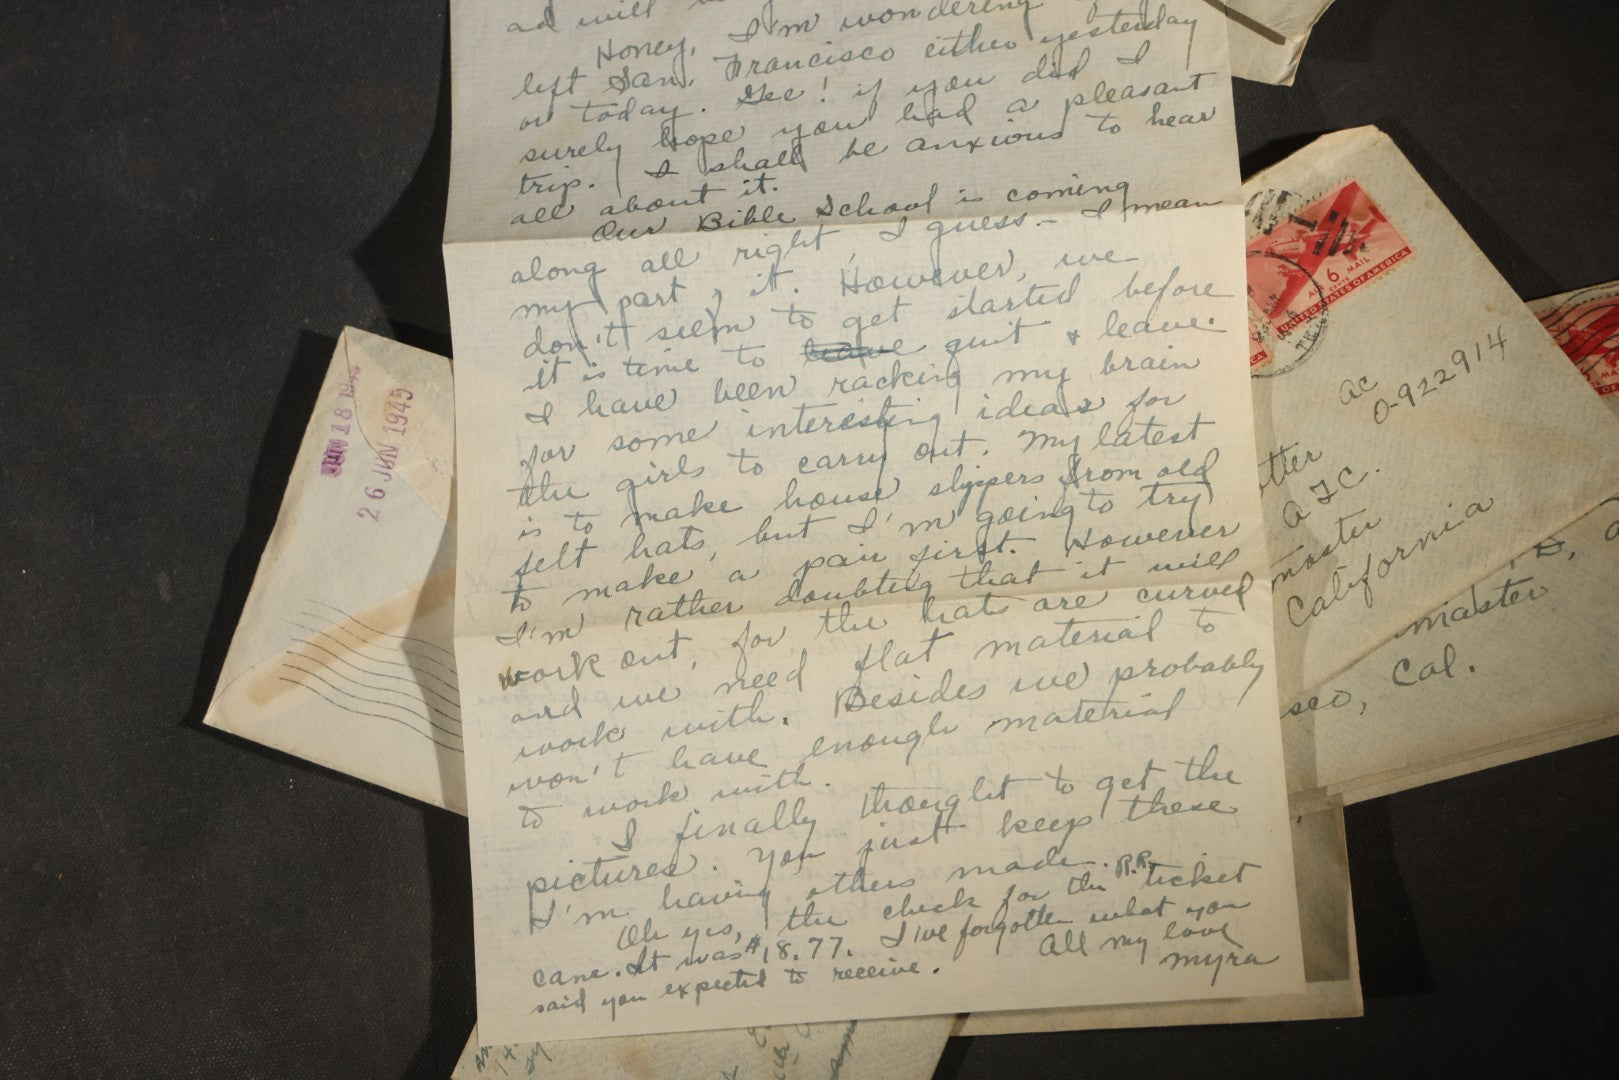 ad will
Honey, I'm wondering
left San. Francisco either yesterday
or today. Gee! if you did I
surely hope you had a pleasant
trip. I shall be anxious to hear
all about it.
Our Bible School is coming
along all right, I guess - I mean
my part of it. However, we
don't seem to get started before
it is time to leave quit & leave.
I have been racking my brain
for some interesting ideas for
the girls to carry out. My latest
is to make house slippers from old
felt hats, but I'm going to try
to make a pair first. However
I'm rather doubting that it will
work out, for the hats are curved
and we need flat material to
work with. Besides we probably
won't have enough material
to work with.
I finally thought to get the
pictures. You just keep these
I'm having others made.
Oh yes, the check for the R.R. ticket
came. It was $18.77. I've forgotten what you
said you expected to receive.
All my love
Myra
JUN 18 1945
26 JUN 1945
6 CENTS
AIR MAIL
UNITED STATES OF AMERICA
AC
O-922914
otter
ATC.
master
California
master
sco, Cal.